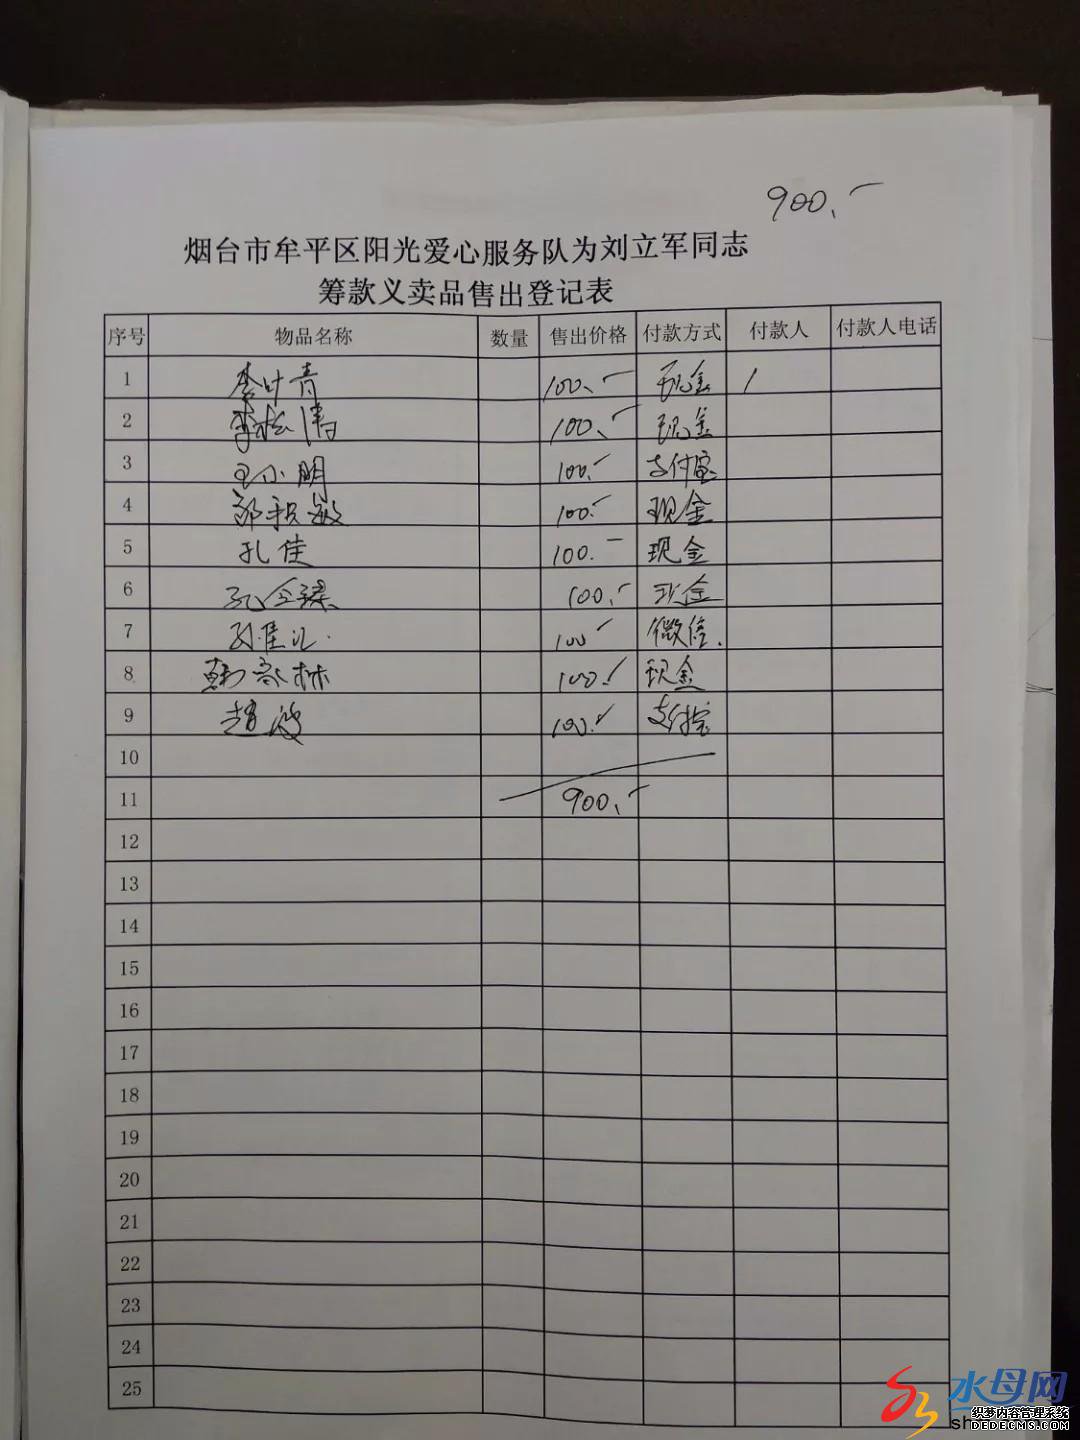 900.-
烟台市牟平区阳光爱心服务队为刘立军同志
筹款义卖品售出登记表
序号 物品名称 数量 售出价格 付款方式 付款人 付款人电话
1 李叶青 100.- 现金
2 李松涛 100.- 现金
3 王小朋 100.- 支付宝
4 邹积敏 100.- 现金
5 孔佳 100.- 现金
6 孔令 100.- 现金
7 100- 微信.
8 林 100.- 现金
9 赵波 100.- 支付宝
10
11 900.-
12
13
14
15
16
17
18
19
20
21
22
23
24
25
水母网
织梦内容管理系统